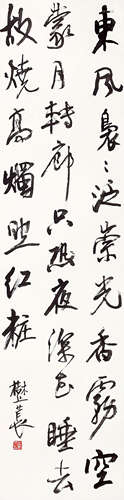 東風裊〻泛崇光香霧空
蒙月轉廊只恐夜深花睡去
故燒高燭照红粧